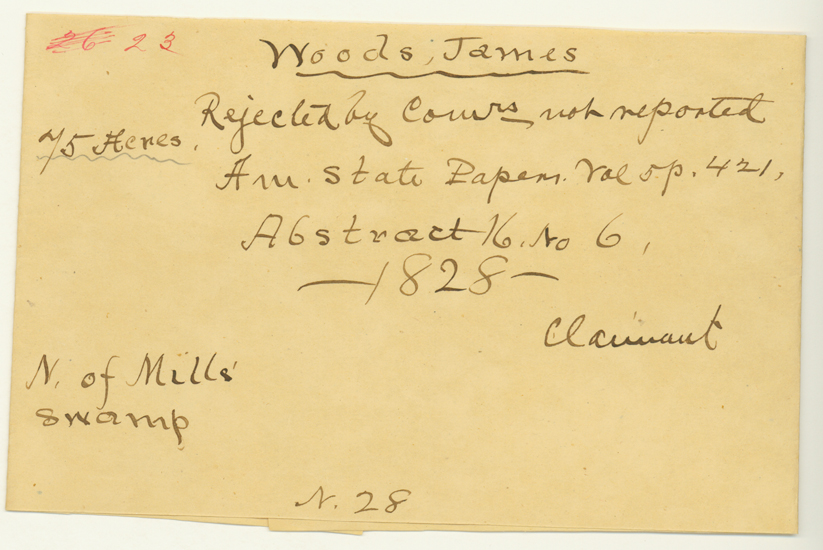 26 23
Woods, James
75 Acres.
Rejected by Comrs not reported
Am. State Papers. Vol 5 p. 421,
Abstract 16. No 6,
—1828—
Claimant
N. of Mills'
Swamp
N. 28